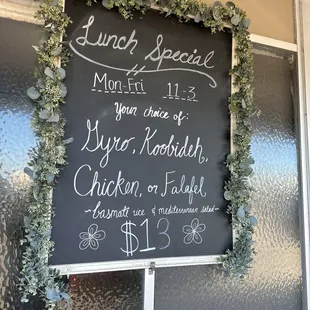 Lunch Special
Mon-Fri 11-3
Your choice of:
Gyro, Koobideh,
Chicken, or Falafel
~basmate rice & mediterranean salad~
$13